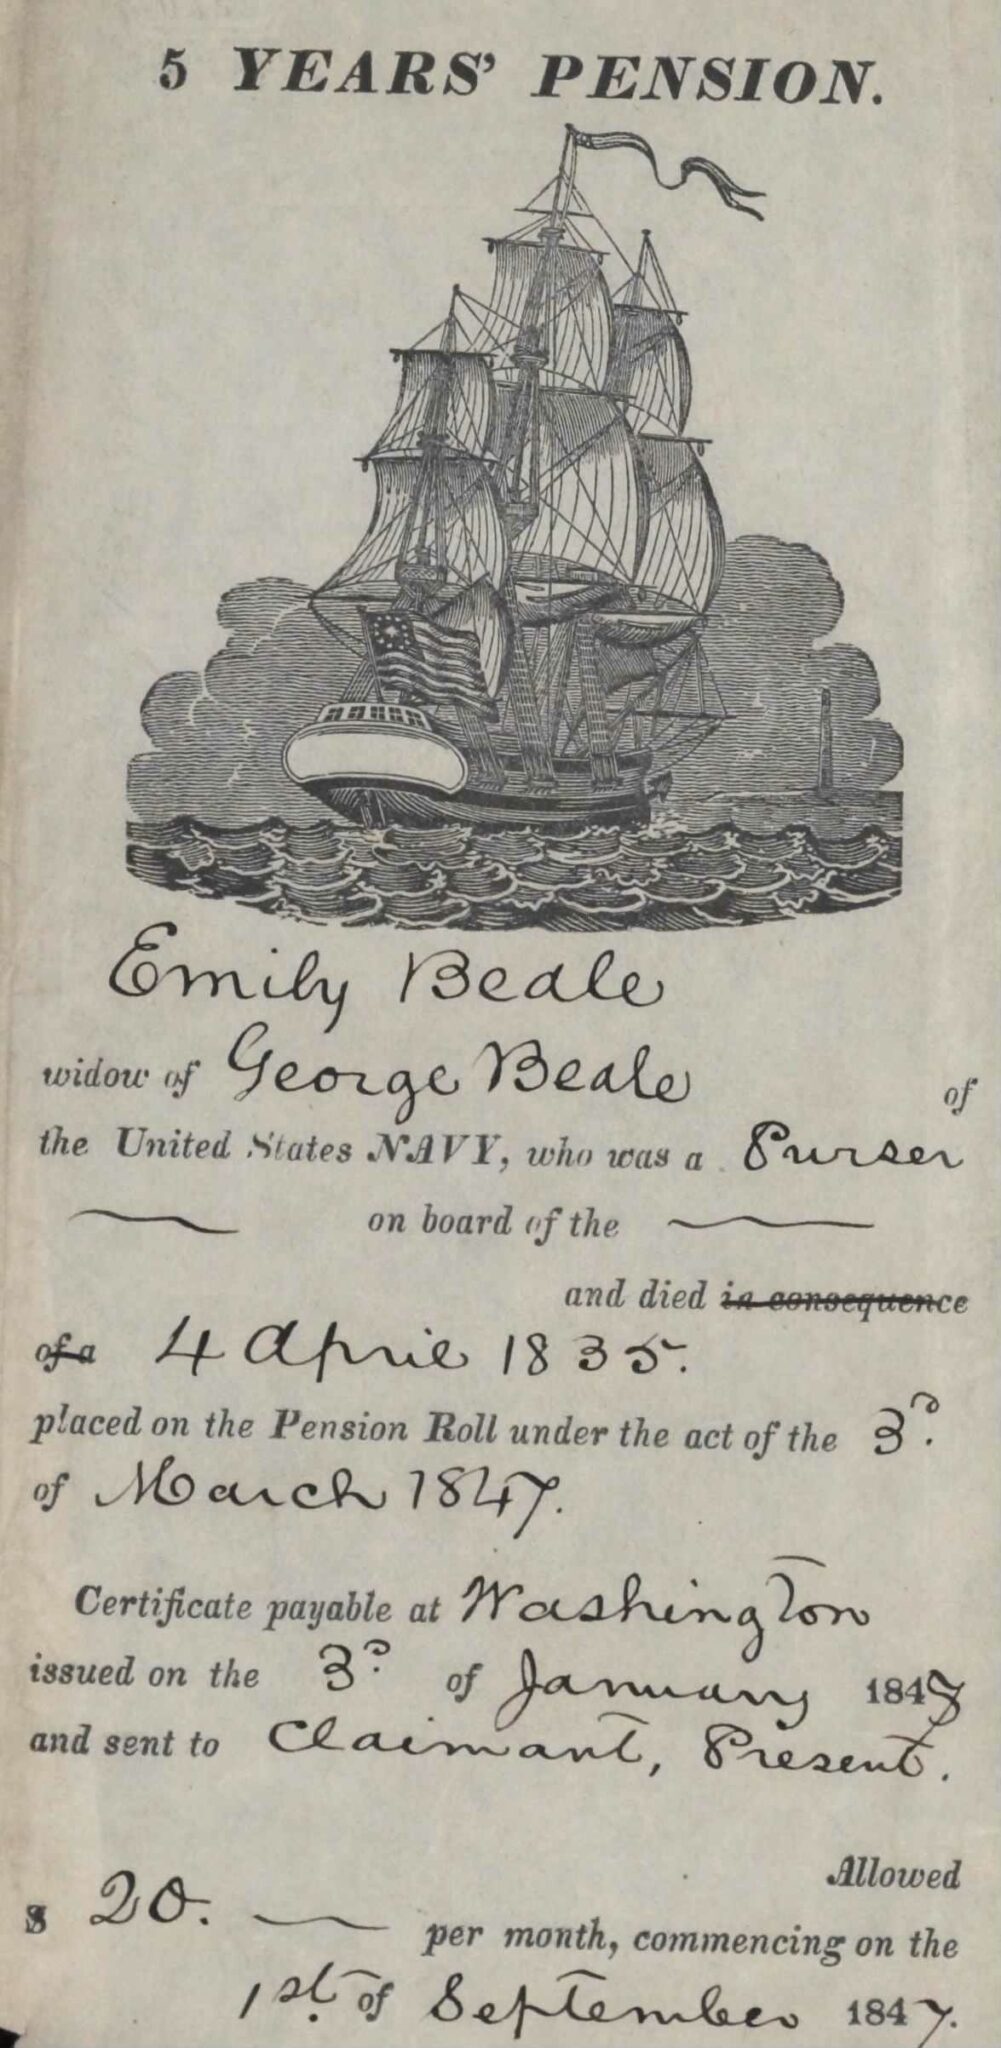 5 YEARS' PENSION.
Emily Beale
widow of George Beale of
the United States NAVY, who was a Purser
on board of the
and died in consequence
of a 4 April 1835.
placed on the Pension Roll under the act of the 3d.
of March 1847.
Certificate payable at Washington
issued on the 3d. of January 1848
and sent to Claimant, Present.
Allowed
$ 20. per month, commencing on the
1st. of September 1847.